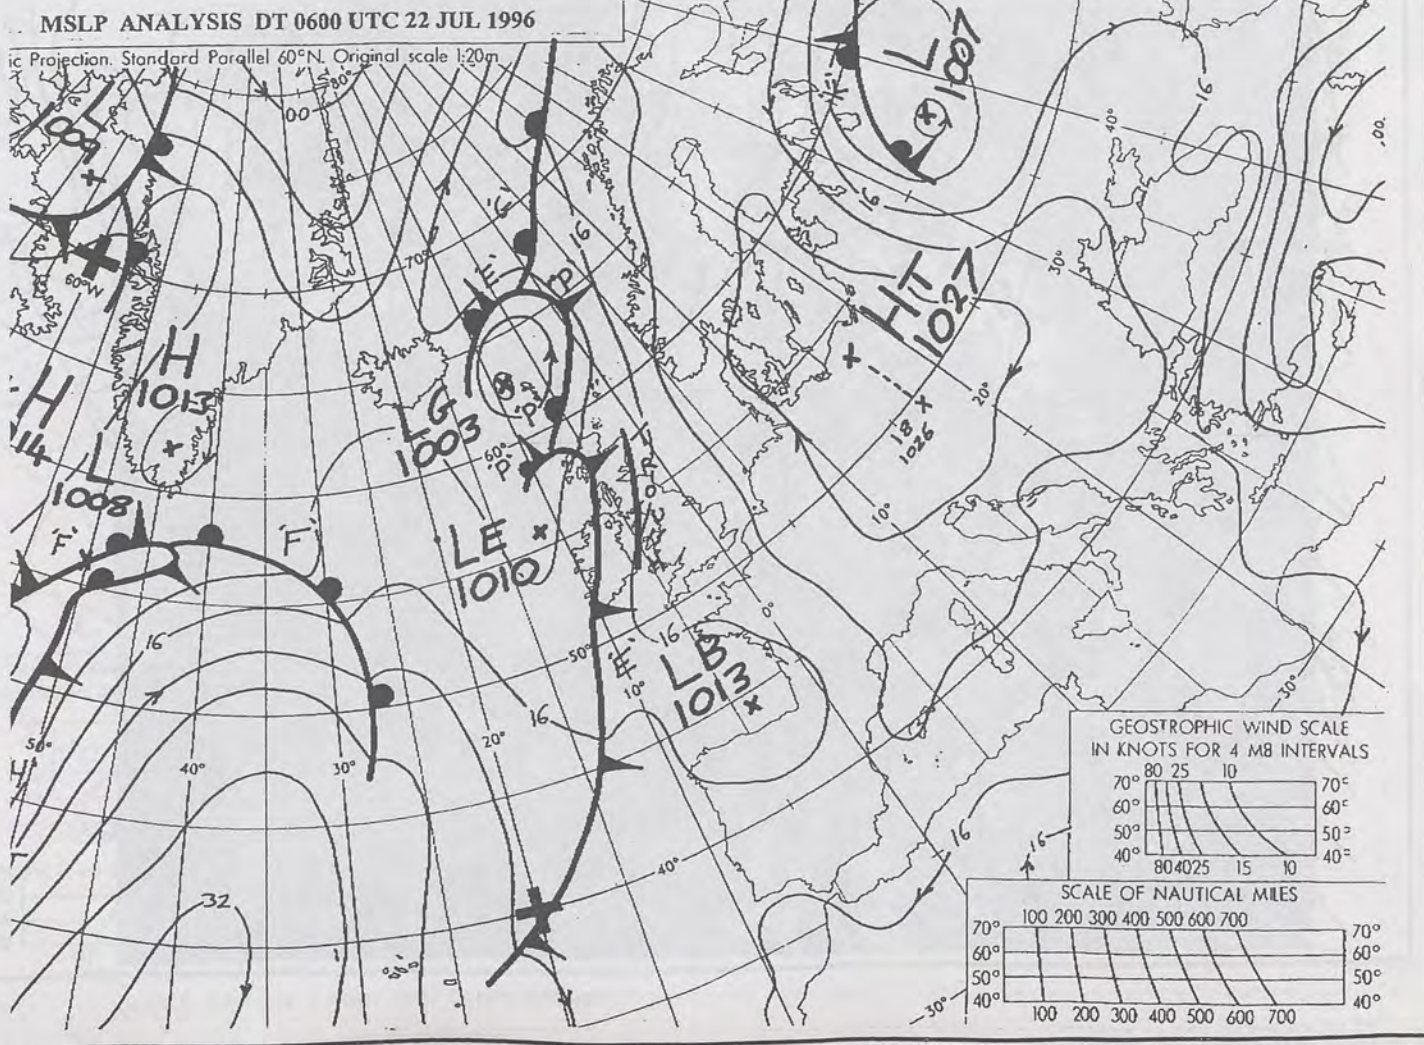 MSLP ANALYSIS DT 0600 UTC 22 JUL 1996
ic Projection. Standard Parallel 60°N. Original scale 1:20m
80°
L
1007
16
40°
60°W
70°
'G'
16
16
30°
'E'
HT
1027
H
1013
H
14
L
1008
LG
1003
'P'
60°
'P'
18
1026
20°
10°
'F'
'F'
LE
1010
0°
16
16
50°
'E'
10°
LB
1013
16
50°
40°
30°
20°
30°
40°
32
16
16
30°
GEOSTROPHIC WIND SCALE
IN KNOTS FOR 4 MB INTERVALS
80 25 10
70° 70°
60° 60°
50° 50°
40° 40°
80 40 25 15 10
SCALE OF NAUTICAL MILES
100 200 300 400 500 600 700
70° 70°
60° 60°
50° 50°
40° 40°
100 200 300 400 500 600 700